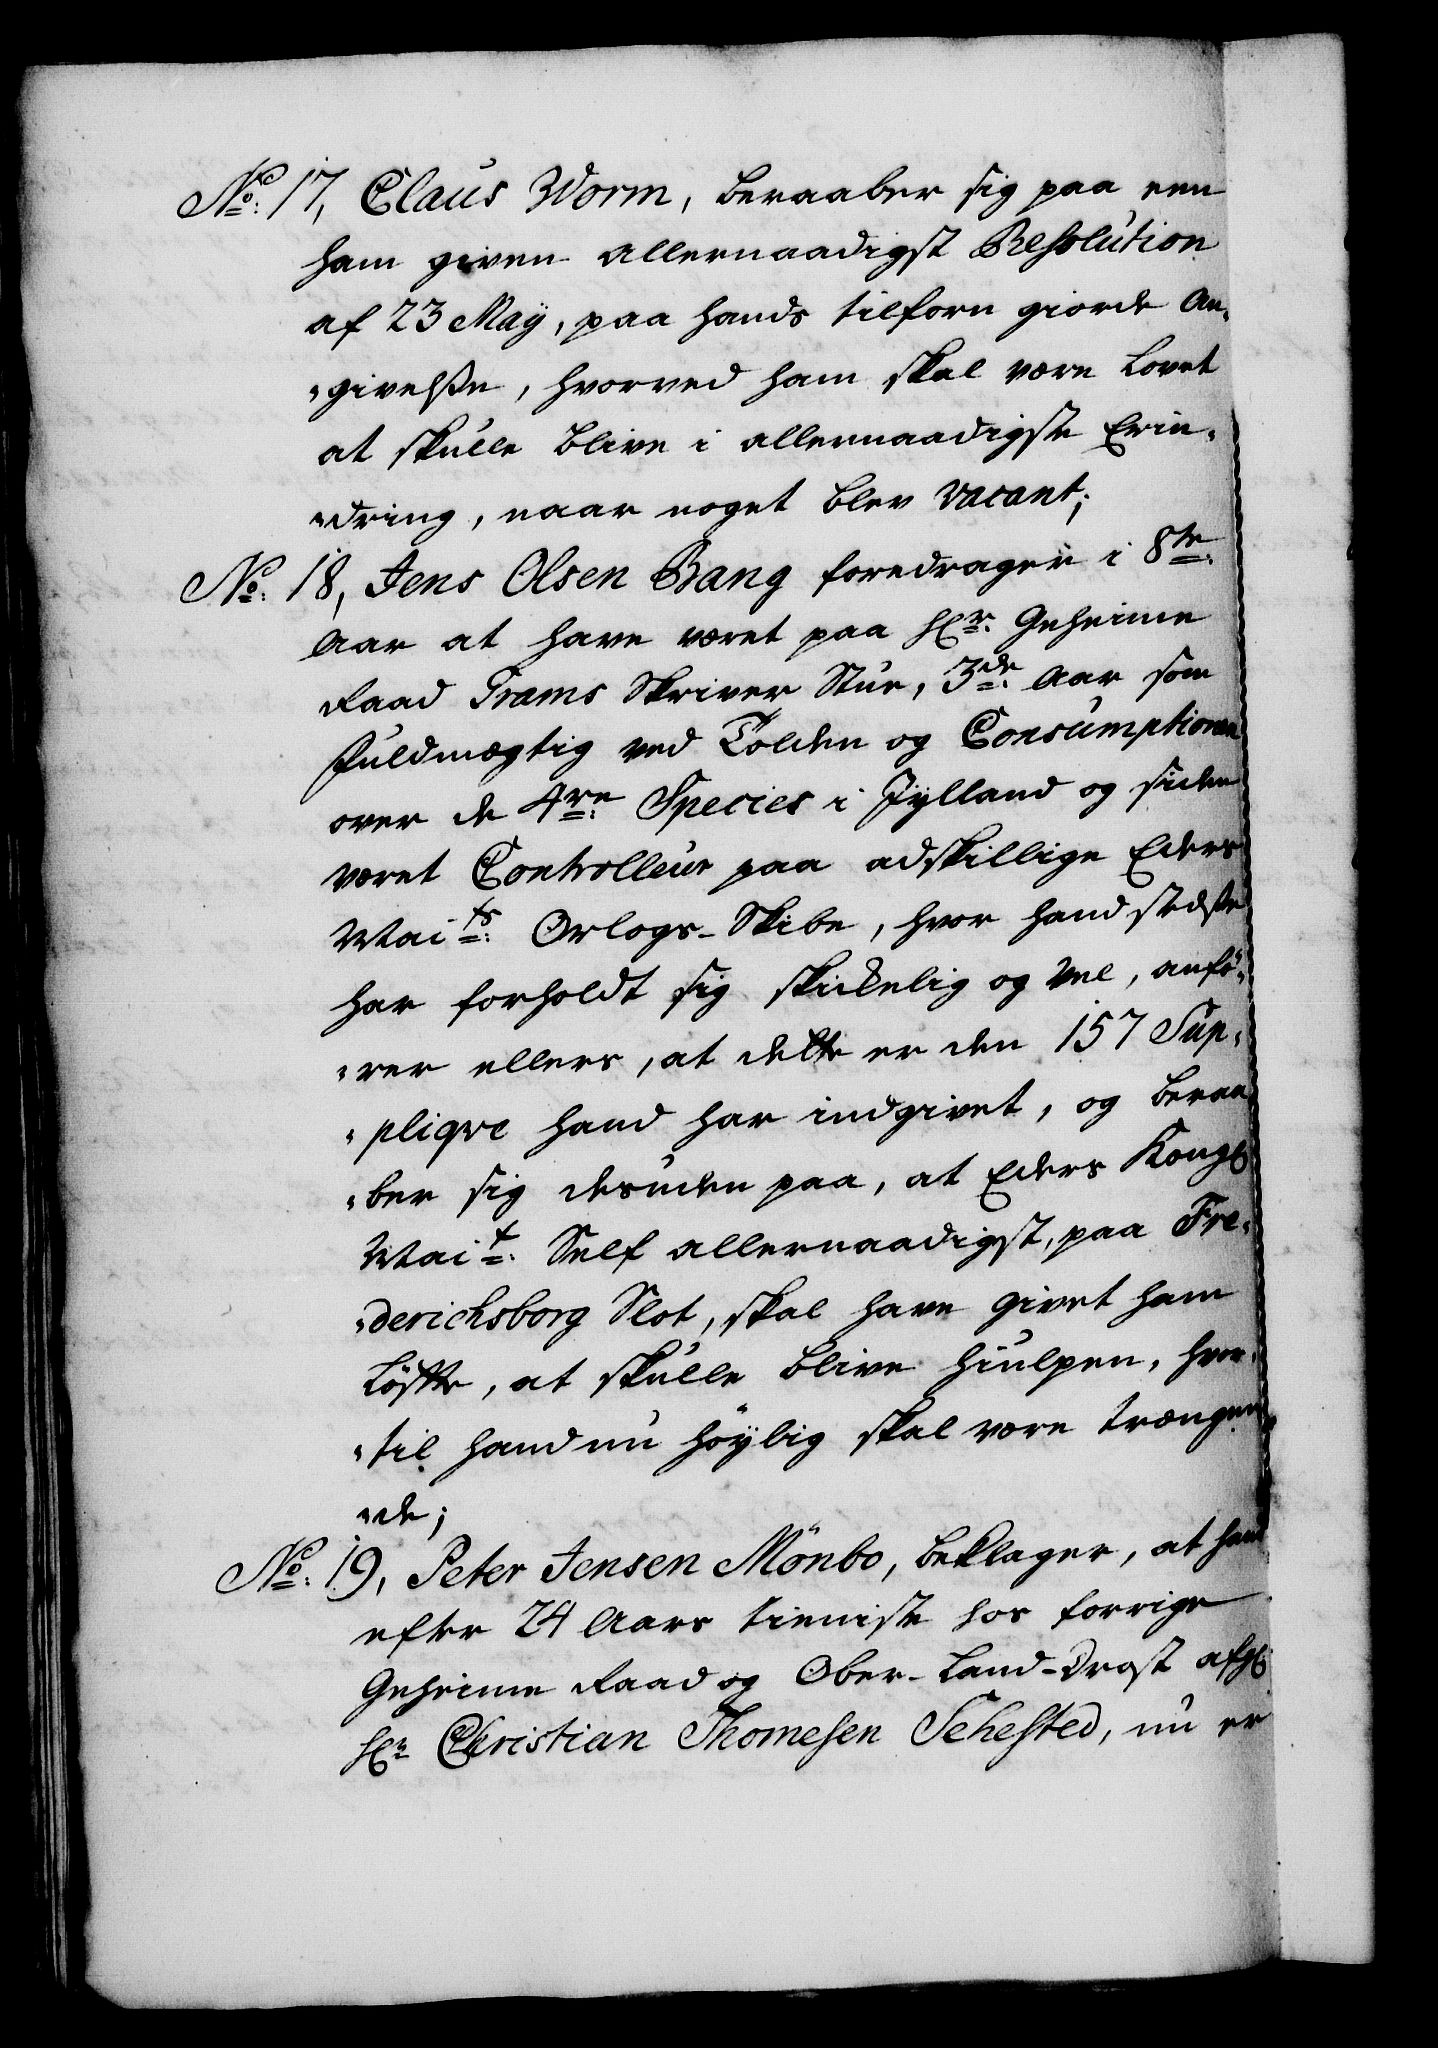 No: 17, Claus Worm, beraaber sig paa een
ham given allernaadigst Resolution
af 23 Maÿ, paa hands tilforn giorde An„
„givelsse, hvorved ham skal være lovet
at skulle blive i allernaadigste Erin„
„dring, naar noget blev vacant;
No: 18, Jens Olsen Bang foredrager i 8te:
Aar at have været paa Hr: Geheime
Raad Trams Skriver Stue, 3de: Aar som
Fuldmægtig ved Tolden og Consumptionen
over de 4re: Species i Jylland og siden
været Controlleur paa adskillige Eders
Maits: Orlogs-Skibe, hvor hand stedse
har forholdt sig skickelig og vel, anfö„
„rer ellers, at dette er den 157 Sup„
„plique hand har indgivet, og beraa„
„ber sig desuden paa, at Eders Kongl
Mait: Self allernaadigst, paa Fre„
„derichsborg Slot, skal have givet ham
Löfte, at skulle blive hiulpen, hvor„
„til hand nu höÿlig skal være trængen„
„de;
No: 19, Peter Jensen Mönbo, beklager, at hand
efter 24 Aars tieniste hos forrige
Geheime Raad og Ober-Land-Drost afgl
Hr: Christian Thomesen Sehested, nu er